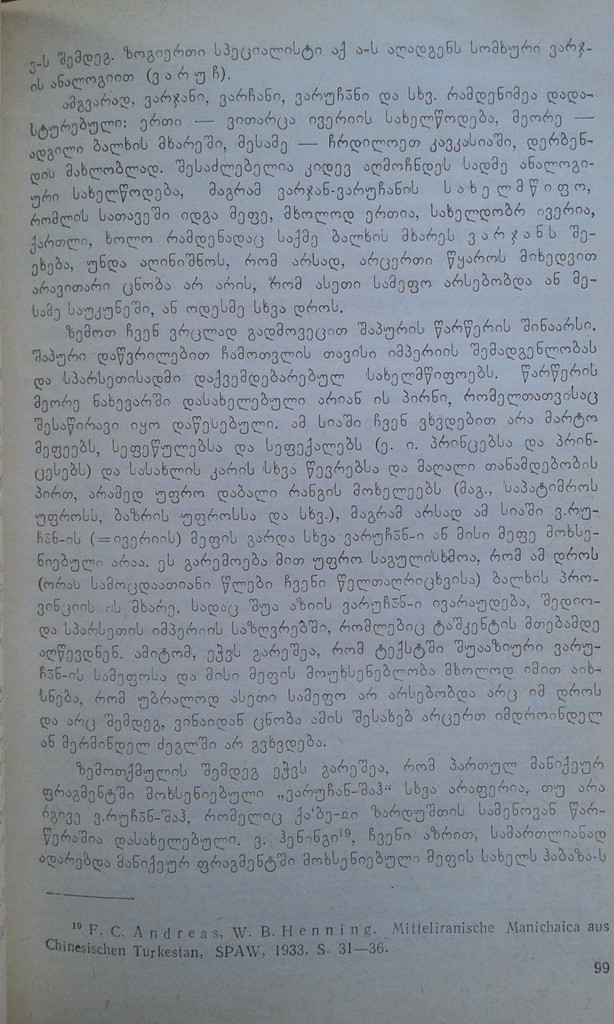 ვ-ს შემდეგ. ზოგიერთი სპეციალისტი აქ ა-ს აღადგენს სომხური ვარჯ-
ის ანალოგიით (ვ ა რ უ ჩ).
ამგვარად, ვარჯანი, ვარჩანი, ვარუჩანი და სხვ. რამდენიმეა დადა-
სტურებული: ერთი — ვითარცა ივერიის სახელწოდება, მეორე —
ადგილი ბალხის მხარეში, მესამე — ჩრდილოეთ კავკასიაში, დერბენ-
დის მახლობლად. შესაძლებელია კიდევ აღმოჩნდეს სადმე ანალოგი-
ური სახელწოდება, მაგრამ ვარჯან-ვარუჩანის ს ა ხ ე ლ მ წ ი ფ ო,
რომლის სათავეში იდგა მეფე, მხოლოდ ერთია, სახელდობრ ივერია,
ქართლი, ხოლო რამდენადაც საქმე ბალხის მხარეს ვ ა რ ჯ ა ნ ს შე-
ეხება, უნდა აღინიშნოს, რომ არსად, არცერთი წყაროს მიხედვით
არავითარი ცნობა არ არის, რომ ასეთი სამეფო არსებობდა ან მე-
სამე საუკუნეში, ან ოდესმე სხვა დროს.
ზემოთ ჩვენ ვრცლად გადმოვეცით შაპურის წარწერის შინაარსი.
შაპური დაწვრილებით ჩამოთვლის თავისი იმპერიის შემადგენლობას
და სპარსეთისადმი დაქვემდებარებულ სახელმწიფოებს. წარწერის
მეორე ნახევარში დასახელებული არიან ის პირნი, რომელთათვისაც
შესაწირავი იყო დაწესებული. ამ სიაში ჩვენ ვხვდებით არა მარტო
მეფეებს, სეფეწულებსა და სეფექალებს (ე. ი. პრინცებსა და პრინ-
ცესებს) და სასახლის კარის სხვა წევრებსა და მაღალი თანამდებობის
პირთ, არამედ უფრო დაბალი რანგის მოხელეებს (მაგ., საპატიმროს
უფროსს, ბაზრის უფროსსა და სხვ.), მაგრამ არსად ამ სიაში ვ.რუ-
ჩān-ის (=ივერიის) მეფის გარდა სხვა ვარუჩān-ი ან მისი მეფე მოხსე-
ნიებული არაა. ეს გარემოება მით უფრო საგულისხმოა, რომ ამ დროს
(ორას სამოცდაათიანი წლები ჩვენი წელთაღრიცხვისა) ბალხის პრო-
ვინციის ის მხარე, სადაც შუა აზიის ვარუჩān-ი ივარაუდება, შედიო-
და სპარსეთის იმპერიის საზღვრებში, რომლებიც ტაშკენტის მთებამდე
აღწევდნენ. ამიტომ, ეჭვს გარეშეა, რომ ტექსტში შუააზიური ვარუ-
ჩān-ის სამეფოსა და მისი მეფის მოუხსენებლობა მხოლოდ იმით აიხ-
სნება, რომ უბრალოდ ასეთი სამეფო არ არსებობდა არც იმ დროს
და არც შემდეგ, ვინაიდან ცნობა ამის შესახებ არცერთ იმდროინდელ
ან მერმინდელ ძეგლში არ გვხვდება.
ზემოთქმულის შემდეგ ეჭვს გარეშეა, რომ პართულ მანიქეურ
ფრაგმენტში მოხსენიებული „ვარუჩან-შაჰ“ სხვა არაფერია, თუ არა
იგივე ვ.რუჩან-შაჰ, რომელიც ქა'ბე-ი ზარდუშთის სამენოვან წარ-
წერაშია დასახელებული. ვ. ჰენინგი¹⁹, ჩვენი აზრით, სამართლიანად
ადარებდა მანიქეურ ფრაგმენტში მოხსენიებული მეფის სახელს ჰაბაზა-ს
¹⁹ F. C. A n d r e a s, W. B. H e n n i n g. Mitteliranische Manichaica aus
Chinesischen Turkestan, SPAW, 1933, S. 31—36.
99